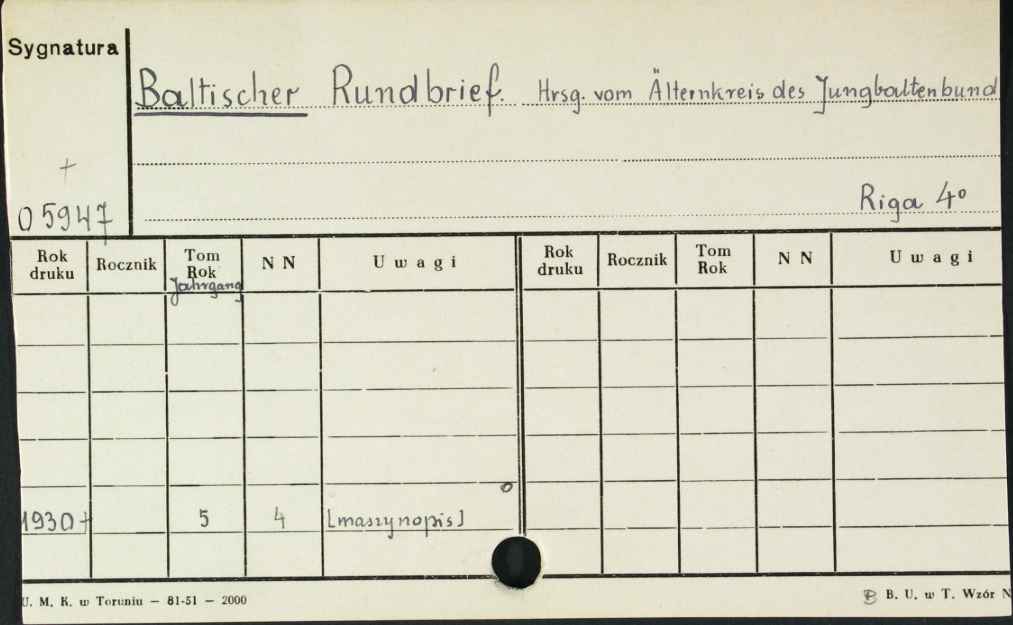 Sygnatura
Baltischer Rundbrief. Hrsg. vom Älternkreis des Jungbaltenbund
+
05947
Riga 4º
Rok druku Rocznik Tom Rok Jahrgang N N Uwagi Rok druku Rocznik Tom Rok N N Uwagi
1930+ 5 4 [maszynopis]
U. M. K. w Toruniu — 81-51 — 2000
B. U. w T. Wzór N